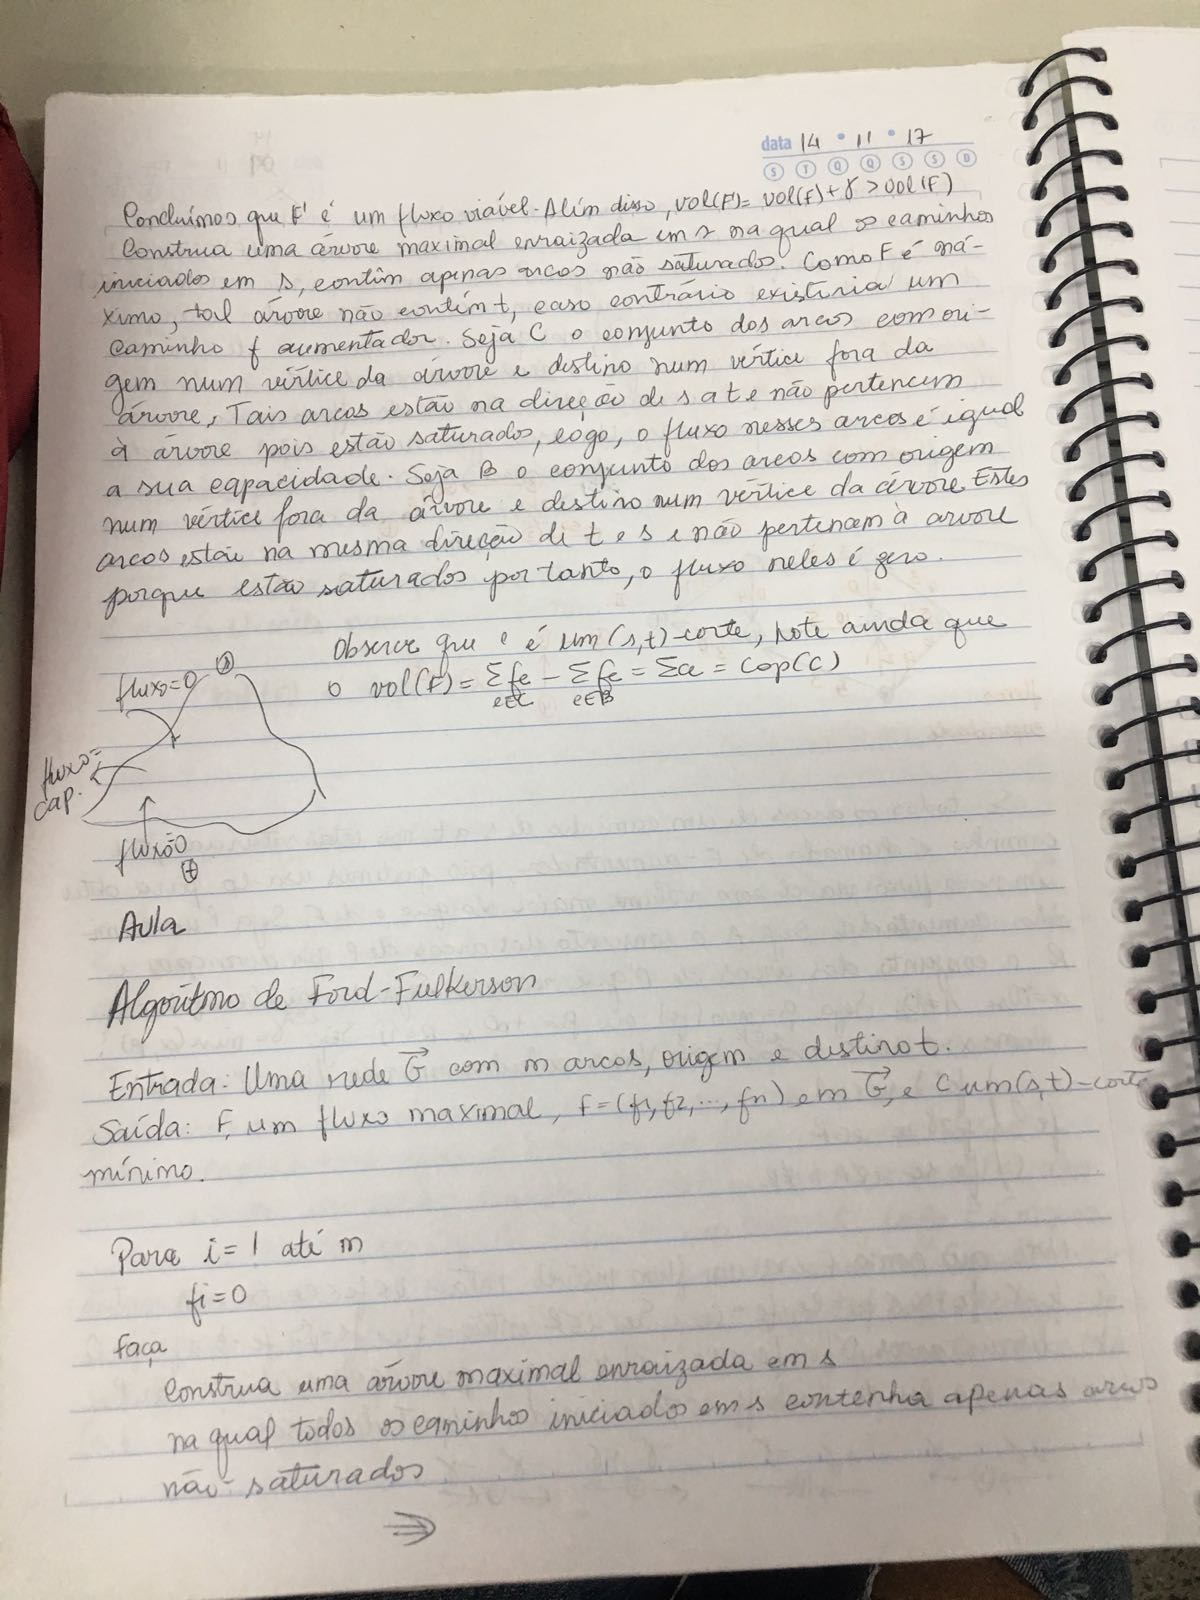 data 14 • 11 • 17
S T Q Q S S D
Concluímos que F' é um fluxo viável. Além disso, vol(F')= vol(F)+γ > vol(F)
Construa uma árvore maximal enraizada em s na qual os caminhos
iniciados em s, contêm apenas arcos não saturados. Como F é má-
ximo, tal árvore não contém t, caso contrário existiria um
caminho f aumentador. Seja C o conjunto dos arcos com ori-
gem num vértice da árvore e destino num vértice fora da
árvore, Tais arcos estão na direção de s a t e não pertencem
à árvore pois estão saturados, logo, o fluxo nesses arcos é igual
a sua capacidade. Seja B o conjunto dos arcos com origem
num vértice fora da árvore e destino num vértice da árvore. Estes
arcos estão na mesma direção de t e s e não pertenam à arvore
porque estão saturados portanto, o fluxo neles é zero.
Observe que e é um (s,t)-corte, note ainda que
o vol(F) = Σfe - Σfe = Σce = Cap(C)
e∈C e∈B
s
fluxo=0
fluxo=
cap.
fluxo=0
t
Aula
Algoritmo de Ford-Fulkerson
Entrada: Uma rede G⃗ com m arcos, origem e destino t.
Saída: F, um fluxo maximal, F=(f1, f2, ..., fn) em G⃗, e C um (s,t)-corte
mínimo.
Para i= 1 até m
fi=0
Faça
Construa uma árvore maximal enraizada em s
na qual todos os caminhos iniciados em s contenha apenas arcos
não-saturados
⇒